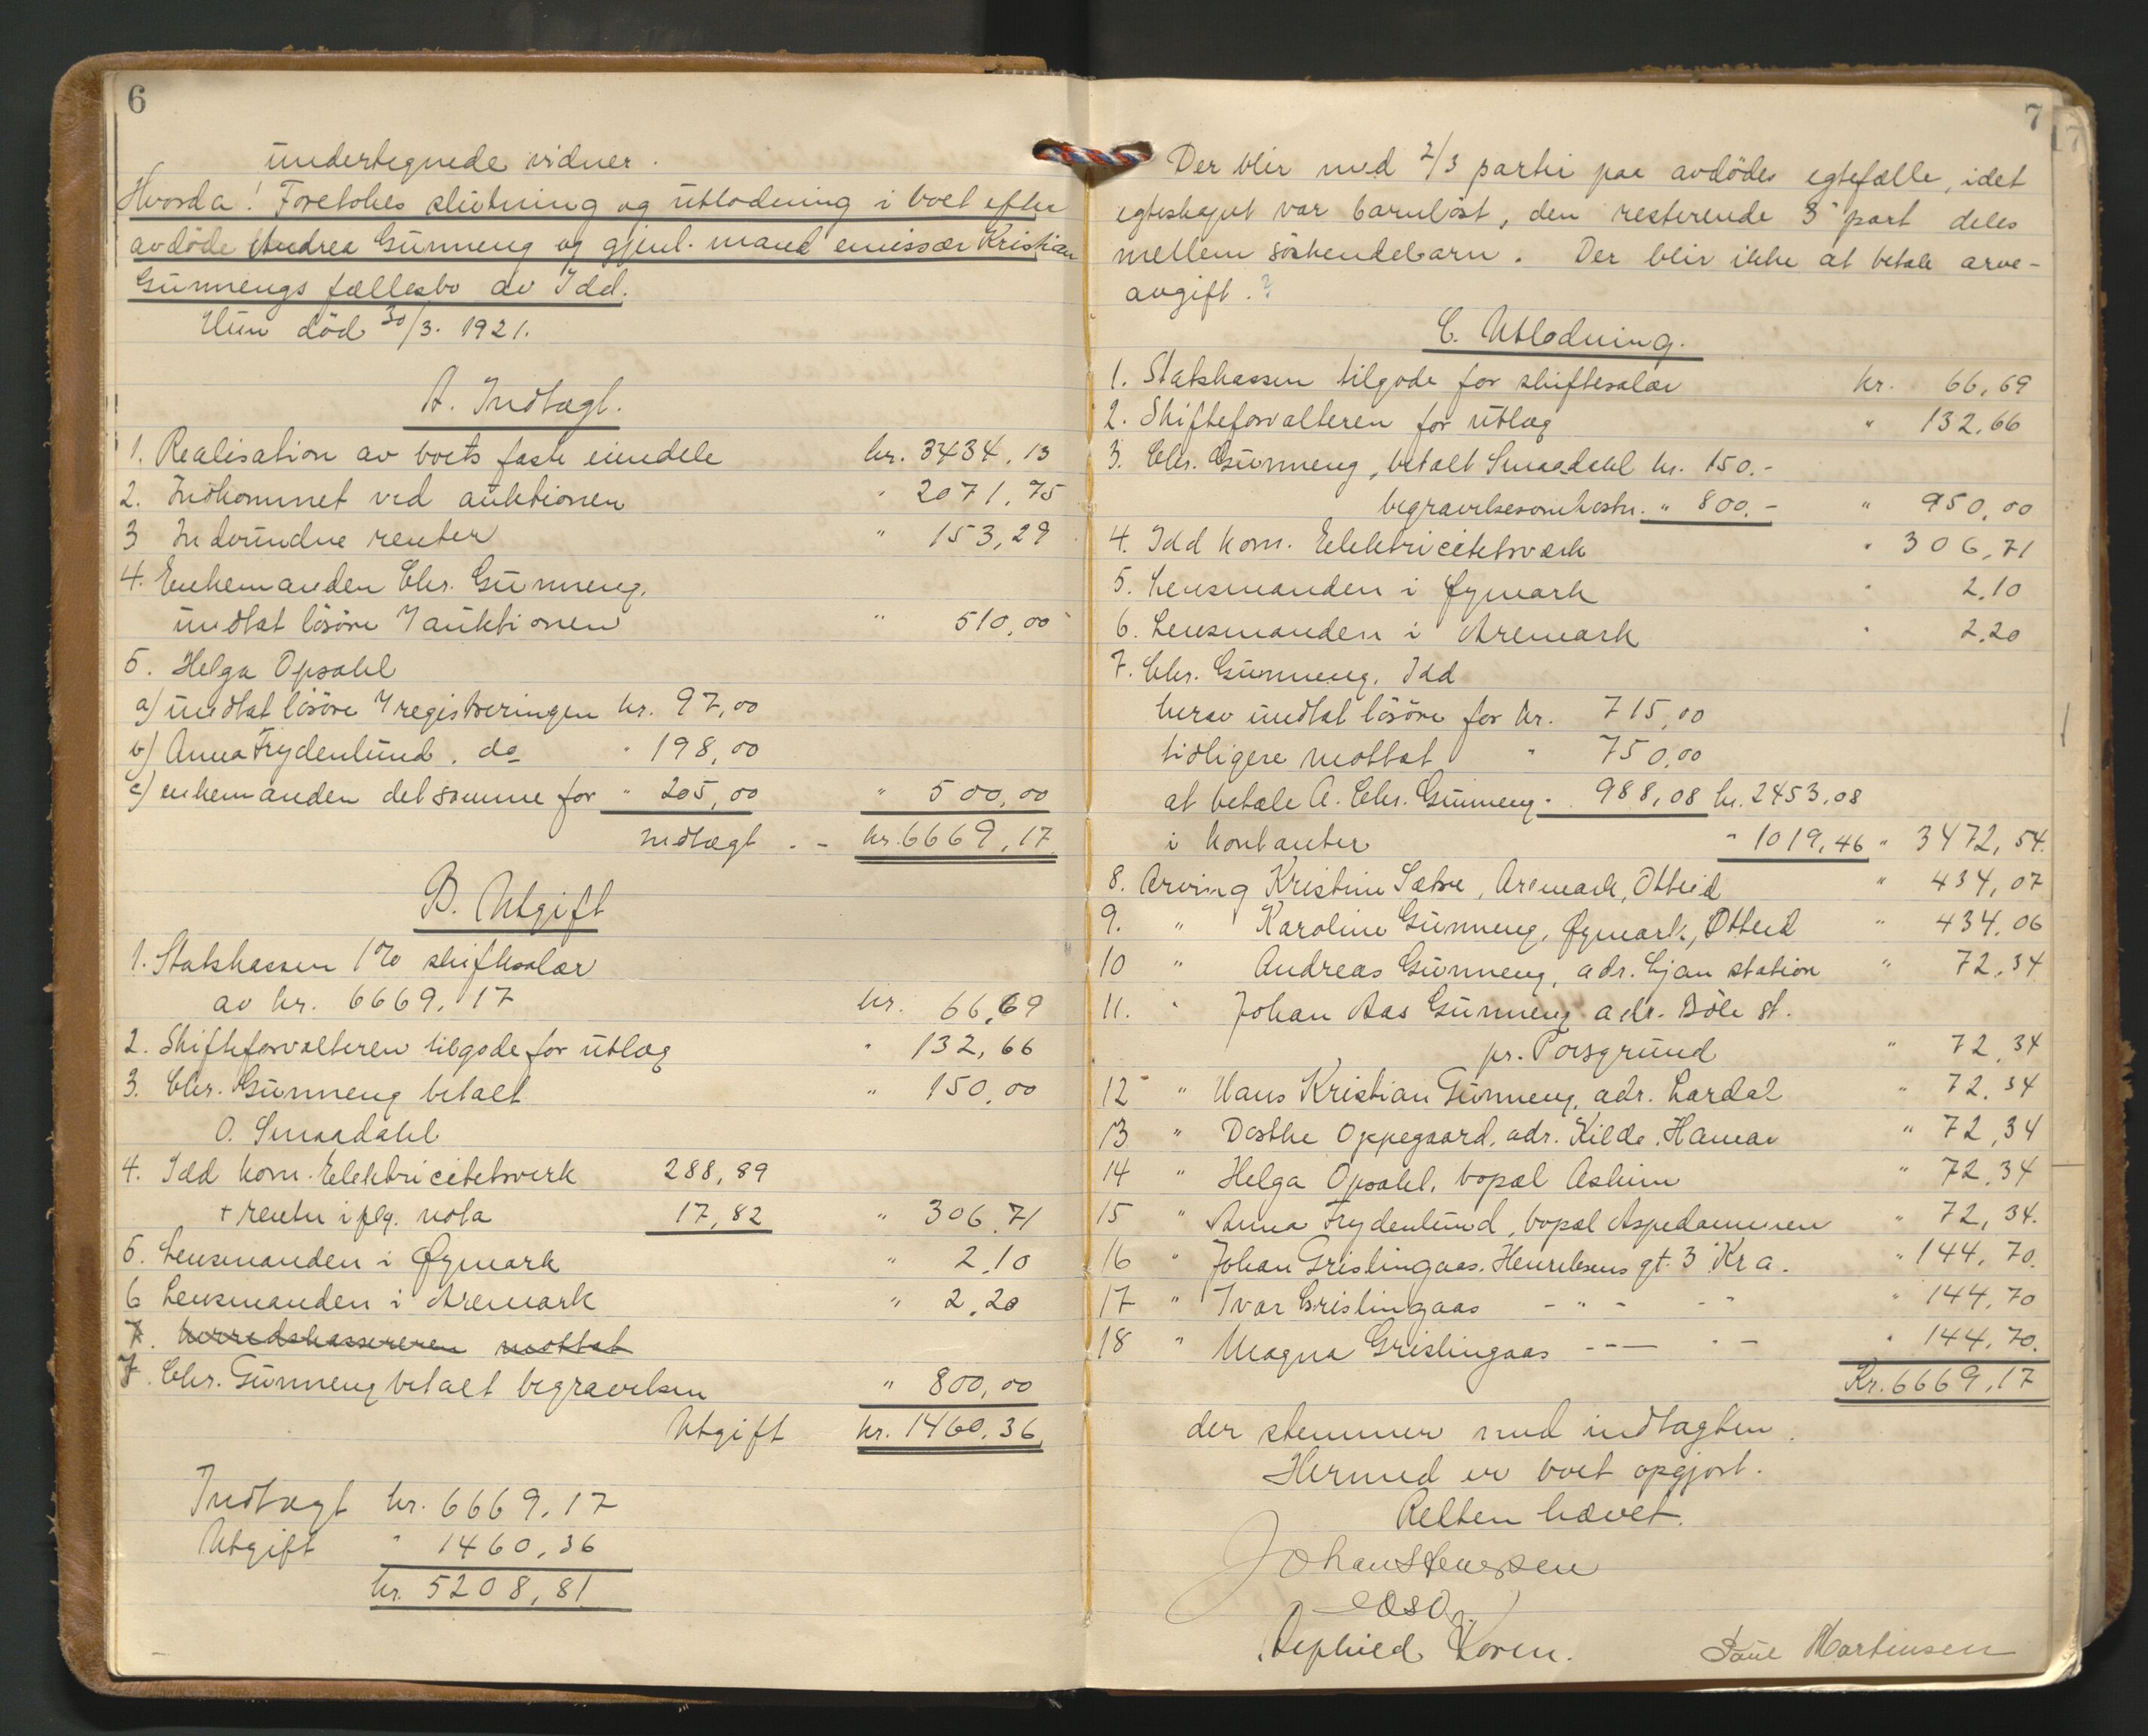 6
undertegnede vidner.
Hvorda! Foretokes slutning og utlodning i boet efter
avdøde Andrea Gunneng og gjenl. mand emissær Kristian
Gunnengs fællesbo av Idd.
Hun död 30/3. 1921.
A. Indtægt.
1. Realisation av boets faste eiendele kr. 3434,13
2. Indkommet ved auktionen " 2071,75
3 Indvundne renter " 153,29
4. Enkemanden Chr. Gunneng,
undtat lösöre / auktionen " 510,00
5. Helga Opsahl
a) undtat lösöre / registreringen kr. 97,00
b) Anna Frydenlund, do " 198,00
c) enkemanden det samme for " 205,00 " 500,00
Indtægt . - kr. 6669,17
B. Utgift
1. Statskassen 1% skiftesalær
av kr. 6669,17 kr. 66,69
2. Skifteforvalteren tilgode for utlæg " 132,66
3. Chr. Gunneng betalt " 150,00
O. Smaadahl
4. Idd kom. Elektricitetsverk 288,89
+ renter ifølg. nota 17,82 " 306,71
5. Lensmanden i Øymark " 2,10
6 Lensmanden i Aremark " 2,20
7. herredskassereren mottat
7. Chr. Gunneng betalt begravelsen " 800,00
Utgift kr. 1460,36
Indtægt kr. 6669,17
Utgift " 1460,36
kr. 5208,81
7
Der blir med 2/3 parti paa avdödes egtefælle, idet
egteskapet var barnlöst, den resterende 3 part deles
mellem söskendebarn. Der blir ikke at betale arve-
avgift.
C. Utlodning.
1. Statskassen tilgode for skiftesalær kr. 66,69
2. Skifteforvalteren for utlæg " 132,66
3. Chr. Gunneng, betalt Smaadahl kr. 150.-
begravelsesomkostn. " 800.- " 950,00
4. Idd kom. Elektricitetsverk " 306,71
5. Lensmanden i Øymark " 2,10
6. Lensmanden i Aremark " 2,20
7. Chr. Gunneng, Idd
herav undtat lösöre for kr. 715,00
tidligere mottat " 750,00
at betale A. Chr. Gunneng " 988,08 kr. 2453,08
i kontanter " 1019,46 " 3472,54.
8. Arving Kristine Sætre, Aremark, Otteid " 434,07
9. " Karoline Gunneng, Øymark, Otteid " 434,06
10 " Andreas Gunneng, adr. Ljan station " 72,34
11. " Johan Aas Gunneng adr. Böle st.
pr. Porsgrund " 72,34
12 " Hans Kristian Gunneng, adr. Lardal " 72,34
13 " Dorthe Oppegaard, adr. Kilde, Hamar " 72,34
14 " Helga Opsahl, bopæl Askim " 72,34
15 " Anna Frydenlund, bopæl Aspedammen " 72,34.
16 " Johan Grislingaas, Henriksens gt. 3 Kra. " 144,70.
17 " Ivar Grislingaas - " - - " " 144,70
18 " Magna Grislingaas - - — - — " 144,70.
Kr. 6669,17
der stemmer med indtægten.
Hermed er boet opgjort.
Retten hævet.
Johan Stenersen
Paul Martinsen